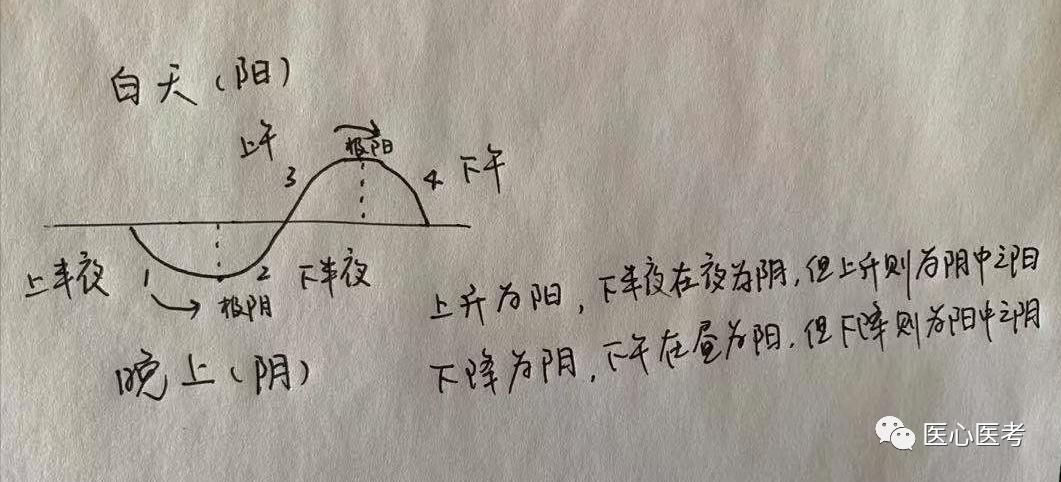 白天（阳）
上午
极阳
3
4 下午
上半夜
1
2
下半夜
极阴
晚上（阴）
上升为阳，下半夜在夜为阴，但上升则为阴中之阳
下降为阴，下午在昼为阳，但下降则为阳中之阴
医心医考